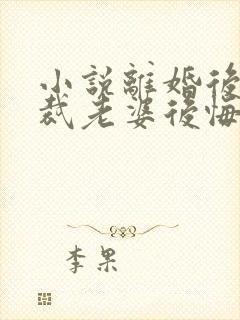 小説離婚後
裁老婆後悔
李果